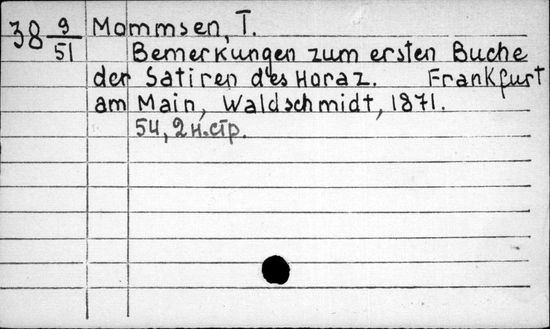 38 9/51 Mommsen, T.
Bemerkungen zum ersten Buche
der Satiren des Horaz. Frankfurt
am Main, Waldschmidt, 1871.
54, 2 н.стр.